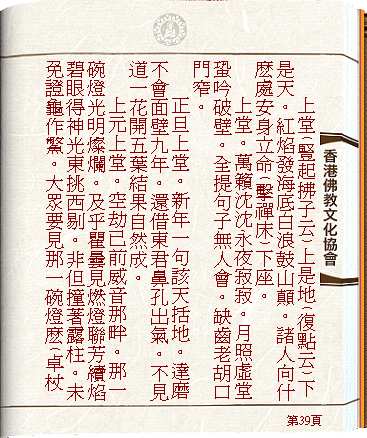 香港佛教文化協會
上堂(豎起拂子云)上是地(復點云)下
是天。紅焰發海底白浪鼓山巔。諸人向什
麽處安身立命(擊禪床)下座。
上堂。萬籟沈沈永夜寂寂。月照虛堂
蛩吟破壁。全提句子無人會。缺齒老胡口
門窄。
正旦上堂。新年一句該天括地。達磨
不會面壁九年。還借東君鼻孔出氣。不見
道一花開五葉結果自然成。
上元上堂。空劫已前威音那畔。那一
碗燈光明燦爛。及乎瞿曇見燃燈聯芳續焰
碧眼得神光東挑西剔。非但撞著露柱。未
免證龜作鱉。大眾要見那一碗燈麽(卓杖
第39頁